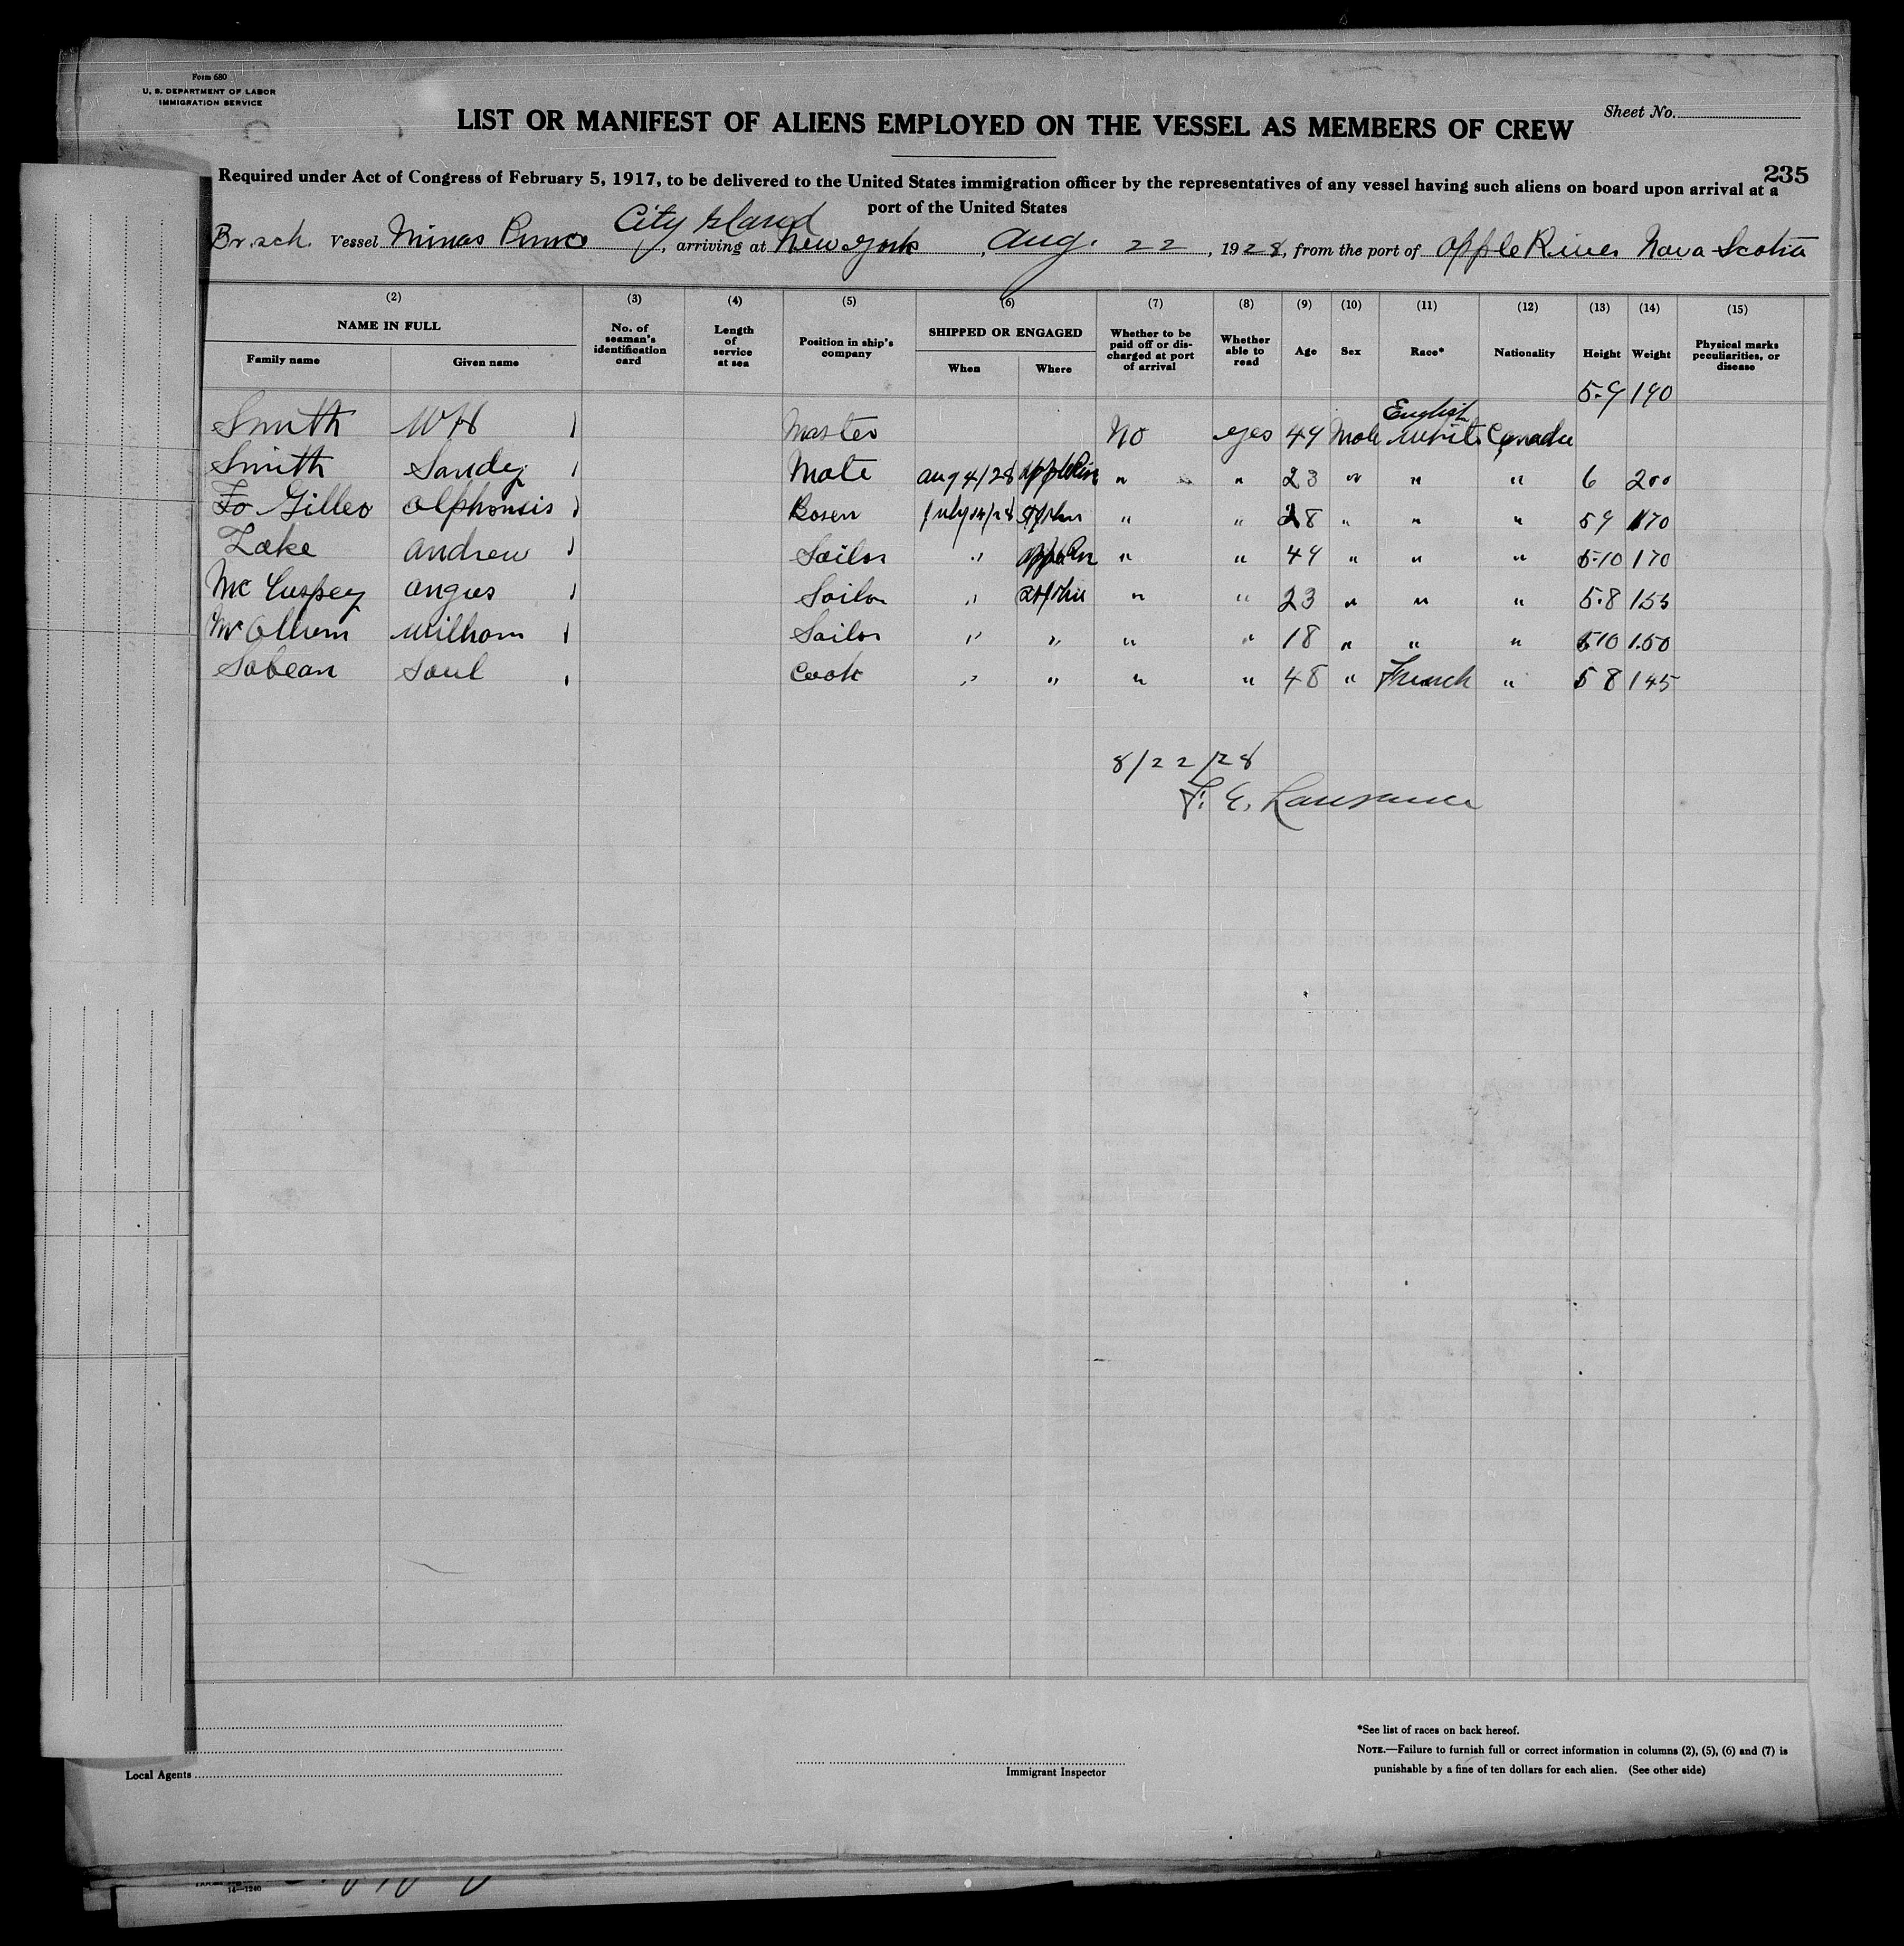 Form 680
U. S. DEPARTMENT OF LABOR
IMMIGRATION SERVICE
LIST OR MANIFEST OF ALIENS EMPLOYED ON THE VESSEL AS MEMBERS OF CREW
Sheet No.
235
Required under Act of Congress of February 5, 1917, to be delivered to the United States immigration officer by the representatives of any vessel having such aliens on board upon arrival at a
port of the United States
City Island
Br. sch. Vessel Minas , arriving at New York , Aug. 22 , 1928, from the port of Apple River Nova Scotia
(2) (3) (4) (5) (6) (7) (8) (9) (10) (11) (12) (13) (14) (15)
NAME IN FULL
Family name Given name
No. of seaman's identification card
Length of service at sea
Position in ship's company
SHIPPED OR ENGAGED
When Where
Whether to be paid off or discharged at port of arrival
Whether able to read
Age Sex Race* Nationality Height Weight
Physical marks peculiarities, or disease
5.9 190
English
Smith WH Master No yes 49 Male White Canada
Smith Sandy Mate Aug 4/28 " " 23 " " " 6 200
Gilleo Bosen July /28 " " 28 " " " 5 9 170
Lake Andrew Sailor " " " 49 " " " 5.10 170
Angus Sailor " " " 23 " " " 5.8 155
William Sailor " " " " 18 " " " 5 10 150
Sabean Saul Cook " " " " 48 " French " 5 8 145
8/22/28
Local Agents
Immigrant Inspector
*See list of races on back hereof.
NOTE.—Failure to furnish full or correct information in columns (2), (5), (6) and (7) is
punishable by a fine of ten dollars for each alien. (See other side)
14—1240